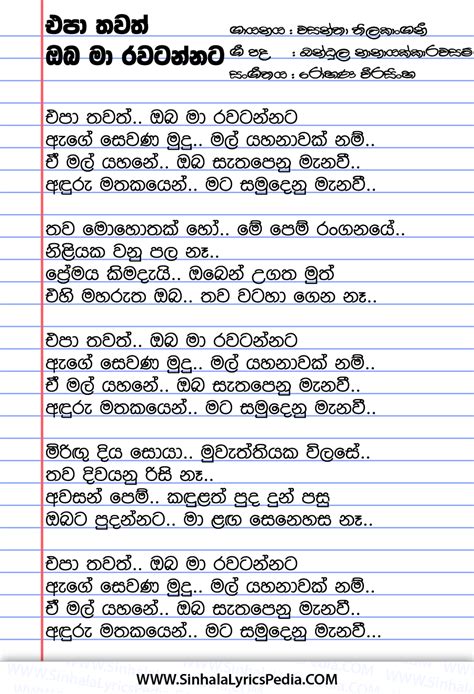 එපා තවත්
ඔබ මා රවටන්නට
ගායනය : වසන්තා තිලකාංගනී
ගී පද : බන්දුල නානයක්කාරවසම්
සංගීතය : රෝහණ වීරසිංහ
එපා තවත්.. ඔබ මා රවටන්නට
ඇගේ සෙවණ මුදු.. මල් යහනාවක් නම්..
ඒ මල් යහනේ.. ඔබ සැතපෙනු මැනවී..
අඳුරු මතකයෙන්.. මට සමුදෙනු මැනවී..
තව මොහොතක් හෝ.. මේ පෙම් රංගනයේ..
නිළියක වනු පල නෑ..
ප්‍රේමය කිමදැයි.. ඔබෙන් උගත මුත්
එහි මහරුත ඔබ.. තව වටහා ගෙන නෑ..
එපා තවත්.. ඔබ මා රවටන්නට
ඇගේ සෙවණ මුදු.. මල් යහනාවක් නම්..
ඒ මල් යහනේ.. ඔබ සැතපෙනු මැනවී..
අඳුරු මතකයෙන්.. මට සමුදෙනු මැනවී..
මිරිඟු දිය සොයා.. මුවැත්තියක විලසේ..
තව දිවයනු රිසි නෑ..
අවසන් පෙම්.. කඳුළත් පුද දුන් පසු
ඔබට පුදන්නට.. මා ළඟ සෙනෙහස නෑ..
එපා තවත්.. ඔබ මා රවටන්නට
ඇගේ සෙවණ මුදු.. මල් යහනාවක් නම්..
ඒ මල් යහනේ.. ඔබ සැතපෙනු මැනවී..
අඳුරු මතකයෙන්.. මට සමුදෙනු මැනවී...
WWW.SinhalaLyricsPedia.COM